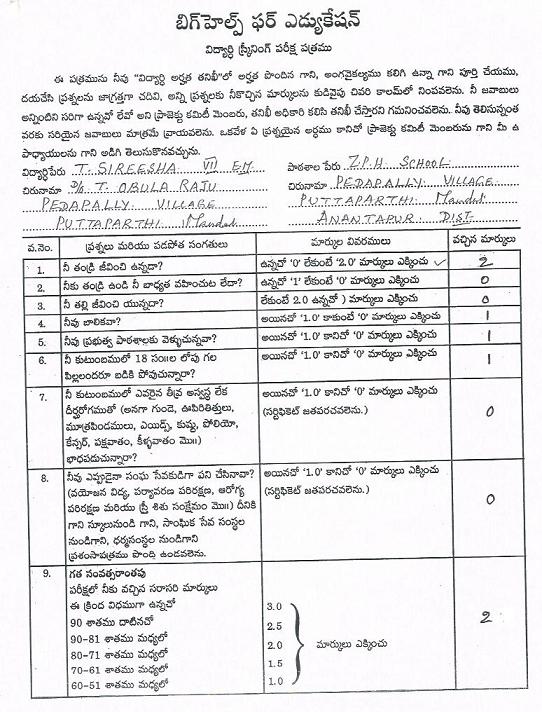 బిగ్‌హెల్ప్ ఫర్ ఎడ్యుకేషన్
విద్యార్ధి స్క్రీనింగ్ పరీక్ష పత్రము
ఈ పత్రమును నీవు "విద్యార్థి అర్హత తనిఖీ"లో అర్హత పొందిన గాని, అంగవైకల్యము కలిగి ఉన్నా గాని పూర్తి చేయుము,
దయచేసి ప్రశ్నలను జాగ్రత్తగా చదివి, అన్ని ప్రశ్నలకు నీకొచ్చిన మార్కులను కుడివైపు చివరి కాలమ్‌లో నింపవలెను. నీ జవాబులు
అన్నింటిని సరిగా ఉన్నవో లేవో అని ప్రాజెక్టు కమిటీ మెంబరు, తనిఖీ అధికారి కలిసి తనిఖీ చేస్తారని గమనించవలెను. నీవు తెలిసున్నంత
వరకు సరియైన జవాబులు మాత్రమే వ్రాయవలెను. ఒకవేళ ఏ ప్రశ్నయైన అర్ధము కానిచో ప్రాజెక్టు కమిటీ మెంబరును గాని మీ ఉ
పాధ్యాయులను గాని అడిగి తెలుసుకొనవచ్చును.
విద్యార్థిపేరు T. SIREESHA VII EM పాఠశాల పేరు Z.P.H SCHOOL
చిరునామా D/o T OBULA RAJU చిరునామా PEDAPALLY VILLAGE
PEDAPALLY VILLAGE PUTTAPARTHI Mandal
PUTTAPARTHI Mandal ANANTAPUR DIST
వ.నెం. ప్రశ్నలు మరియు పడపోత సంగతులు మార్కుల వివరములు వచ్చిన మార్కులు
1. నీ తండ్రి జీవించి ఉన్నడా? ఉన్నచో '0' లేకుంటే '2.0' మార్కులు ఎక్కించు ✓ 2
2. నీకు తండ్రి ఉండి నీ బాధ్యత వహించుట లేదా? ఉన్నచో '1' లేకుంటే '0' మార్కులు ఎక్కించు 0
3. నీ తల్లి జీవించి యున్నదా? లేకుంటే 2.0 ఉన్నచో ) మార్కులు ఎక్కించు 0
4. నీవు బాలికవా? అయినచో '1.0' కాకుంటే '0' మార్కులు ఎక్కించు 1
5. నీవు ప్రభుత్వ పాఠశాలకు వెళ్ళుచున్నవా? అయినచో '1.0' కానిచో '0' మార్కులు ఎక్కించు 1
6. నీ కుటుంబములో 18 సం॥ల లోపు గల అయినచో '1.0' కానిచో '0' మార్కులు ఎక్కించు 1
పిల్లలందరూ బడికి పోవుచున్నారా?
7. నీ కుటుంబములో ఎవరైన తీవ్ర అస్వస్థ లేక అయినచో '1.0' కానిచో '0' మార్కులు ఎక్కించు
దీర్ఘరోగముతో (అనగా గుండె, ఊపిరితిత్తులు, (సర్టిఫికెట్ జతపరచవలెను.) 0
మూత్రపిండములు, ఎయిడ్స్, కుష్టు, పోలియో,
కేన్సర్, పక్షవాతం, కీళ్ళవాతం మొ॥)
భాధపడుచున్నారా?
8. నీవు ఎప్పుడైనా సంఘ సేవకుడిగా పని చేసినావా? అయినచో '1.0' కానిచో '0' మార్కులు ఎక్కించు
(వయోజన విద్య, పర్యావరణ పరిరక్షణ, ఆరోగ్య (సర్టిఫికెట్ జతపరచవలెను.)
పరిరక్షణ మరియు స్త్రీ శిశు సంక్షేమం మొ॥) దీనికి 0
గాని స్కూలునుండి గాని, సాంఘిక సేవ సంస్థల
నుండిగాని, ధర్మసంస్థల నుండిగాని
ప్రశంసాపత్రము పొంది ఉండవలెను.
9. గత సంవత్సరాంతపు
పరీక్షలో నీకు వచ్చిన సరాసరి మార్కులు
ఈ క్రింద విధముగా ఉన్నచో 3.0
90 శాతము దాటినచో 2.5 2
90-81 శాతము మధ్యలో 2.0 మార్కులు ఎక్కించు
80-71 శాతము మధ్యలో 1.5
70-61 శాతము మధ్యలో 1.0
60-51 శాతము మధ్యలో